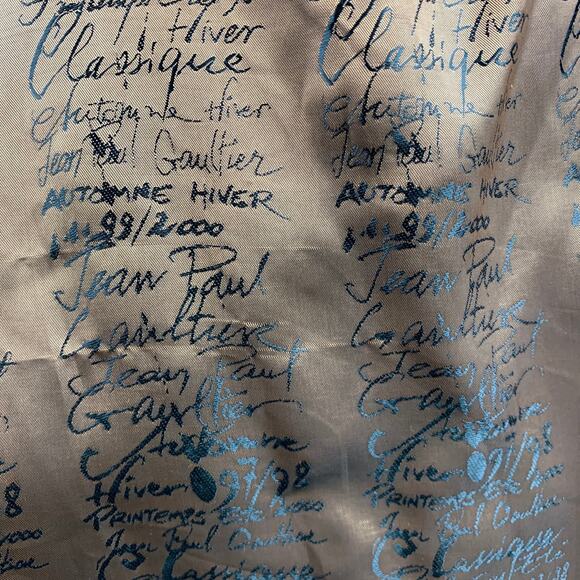 Hiver
Classique
Automne Hiver
Jean Paul Gaultier
AUTOMNE HIVER
99/2000
Jean Paul
Gaultier
Jean Paul
Gaultier
Automne
Hiver 97/98
PRINTEMPS Eté 2000
Jean Paul Gaultier
Classique
Hiver
Classique
Automne Hiver
Jean Paul Gaultier
AUTOMNE HIVER
99/2000
Jean Paul
Gaultier
Jean Paul
Gaultier
Automne
Hiver 97/98
PRINTEMPS Eté 2000
Jean Paul Gaultier
Classique